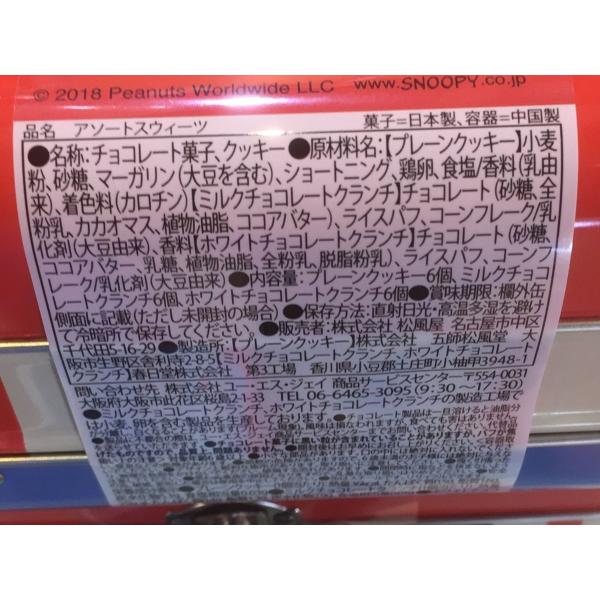 © 2018 Peanuts Worldwide LLC www.SNOOPY.co.jp
品名 アソートスウィーツ 菓子=日本製、容器=中国製
●名称:チョコレート菓子、クッキー●原材料名:【プレーンクッキー】小麦
粉、砂糖、マーガリン(大豆を含む)、ショートニング、鶏卵、食塩/香料(乳由
来)、着色料(カロチン)【ミルクチョコレートクランチ】チョコレート(砂糖、全
粉乳、カカオマス、植物油脂、ココアバター)、ライスパフ、コーンフレーク/乳
化剤(大豆由来)、香料【ホワイトチョコレートクランチ】チョコレート(砂糖、
ココアバター、乳糖、植物油脂、全粉乳、脱脂粉乳)、ライスパフ、コーンフ
レーク/乳化剤(大豆由来)●内容量:プレーンクッキー6個、ミルクチョコ
レートクランチ6個、ホワイトチョコレートクランチ6個●賞味期限:欄外缶
側面に記載(ただし未開封の場合)●保存方法:直射日光・高温多湿を避け
て冷暗所で保存してください。●販売者:株式会社 松風屋 名古屋市中区
千代田5-16-29●製造所:【プレーンクッキー】株式会社 五師松風堂 大
阪市生野区舎利寺2-8-5【ミルクチョコレートクランチ、ホワイトチョコレー
トクランチ】春日堂株式会社 第3工場 香川県小豆郡土庄町小柚甲3948-1
問い合わせ先 株式会社ユー・エス・ジェイ 商品サービスセンター〒554-0031
大阪府大阪市此花区桜島2-1-33 TEL 06-6465-3095(9:30〜17:30)
●ミルクチョコレートクランチ、ホワイトチョコレートクランチの製造工場で
は小麦、卵を含む製品を生産しております。●チョコレート製品は一旦溶けると油脂分